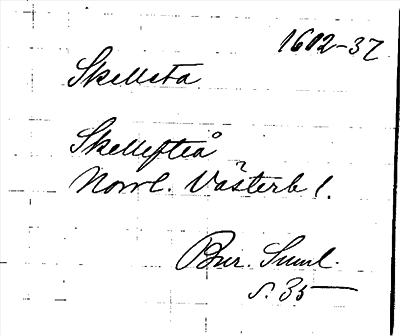 1602-37
Skellsta
Skellefteå
Norrl. Västerb l.
Bur. Suml.
s. 35